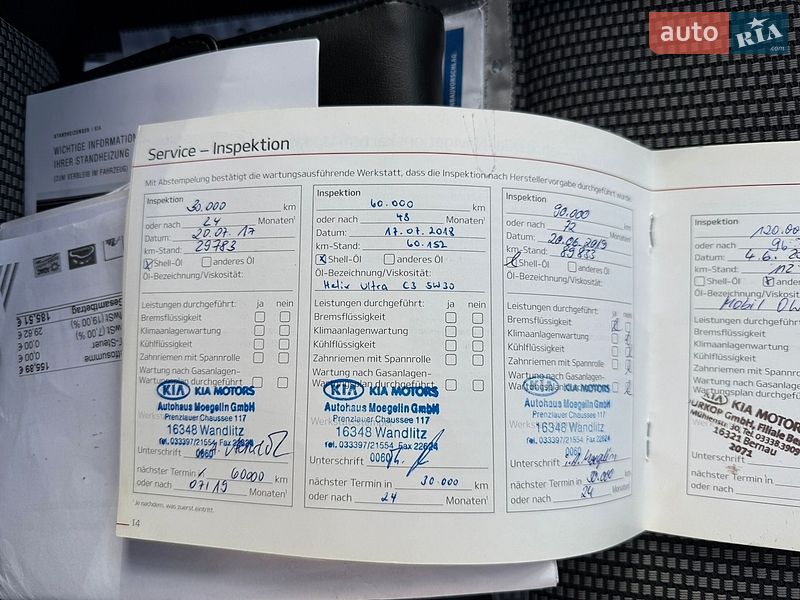 auto RIA .com
STANDHEIZUNGEN | KIA
WICHTIGE INFORMATION
IHRER STANDHEIZUNG
(ZUM VERBLEIB IM FAHRZEUG)
Service – Inspektion
Mit Abstempelung bestätigt die wartungsausführende Werkstatt, dass die Inspektion nach Herstellervorgabe durchgeführt wurde.
Inspektion
30.000 km
oder nach 24 Monaten¹
Datum: 20.07.17
km-Stand: 29783
x Shell-Öl anderes Öl
Öl-Bezeichnung/Viskosität:
Leistungen durchgeführt: ja nein
Bremsflüssigkeit
Klimaanlagenwartung
Kühlflüssigkeit
Zahnriemen mit Spannrolle
Wartung nach Gasanlagen-
Wartungsplan durchgeführt
KIA KIA MOTORS
Autohaus Moegelin GmbH
Prenzlauer Chaussee 117
16348 Wandlitz
tel. 033397/21554 Fax 22624
0060
Unterschrift
nächster Termin 60000 km
oder nach 07/19 Monaten¹
¹Je nachdem, was zuerst eintritt.
14
Inspektion
60.000 km
oder nach 48 Monaten¹
Datum: 17.07.2018
km-Stand: 60.152
x Shell-Öl anderes Öl
Öl-Bezeichnung/Viskosität:
Helix Ultra C3 5W30
Leistungen durchgeführt: ja nein
Bremsflüssigkeit
Klimaanlagenwartung
Kühlflüssigkeit
Zahnriemen mit Spannrolle
Wartung nach Gasanlagen-
Wartungsplan durchgeführt
KIA KIA MOTORS
Autohaus Moegelin GmbH
Prenzlauer Chaussee 117
16348 Wandlitz
tel. 033397/21554 Fax 22624
0060
Unterschrift
nächster Termin in 30.000 km
oder nach 24 Monaten¹
Inspektion
90.000 km
oder nach 72 Monaten¹
Datum: 20.06.2019
km-Stand: 89833
x Shell-Öl anderes Öl
Öl-Bezeichnung/Viskosität:
Leistungen durchgeführt: ja nein
Bremsflüssigkeit
Klimaanlagenwartung
Kühlflüssigkeit
Zahnriemen mit Spannrolle
Wartung nach Gasanlagen-
Wartungsplan durchgeführt
KIA KIA MOTORS
Autohaus Moegelin GmbH
Prenzlauer Chaussee 117
16348 Wandlitz
tel. 033397/21554 Fax 22624
0060
Unterschrift
nächster Termin in 30.000 km
oder nach 24 Monaten¹
Inspektion
120.00
oder nach 96
Datum: 4.6.
km-Stand:
Shell-Öl x
Öl-Bezeichnung/Viskosität:
Mobil 0W
Leistungen durchgeführt:
Bremsflüssigkeit
Klimaanlagenwartung
Kühlflüssigkeit
Zahnriemen mit Spannrolle
Wartung nach Gasanlagen-
Wartungsplan durchgeführt
KIA MOTORS
GmbH, Filiale
16321 Bernau
2071
Unterschrift
nächster Termin in
oder nach
Gesamtbetrag 185,51 €
29,62 €
0,00 €
0,00 €
155,89 €